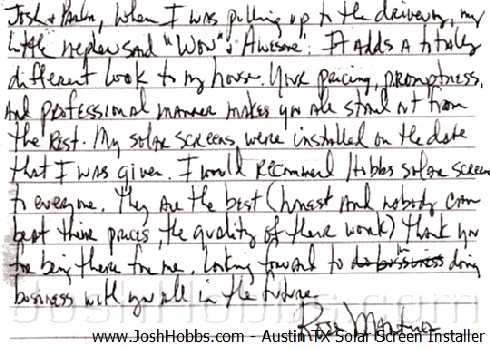 Josh & Parker, When I was pulling up to the driveway, my
little nephew said "Wow" & Awesome". It adds a totally
different look to my house. Your pricing, promptness,
and professional manner makes you all stand out from
the rest. My solar screens were installed on the date
that I was given. I would recommend Hobbs solar screen
to everyone. They are the best (honest and nobody can
beat there prices, the quality of there work) Thank you
for being there for me. Looking forward to do bussiness doing
business with you all in the future.
Rose Martinez
joshhobbs.com
www.JoshHobbs.com - Austin TX Solar Screen Installer